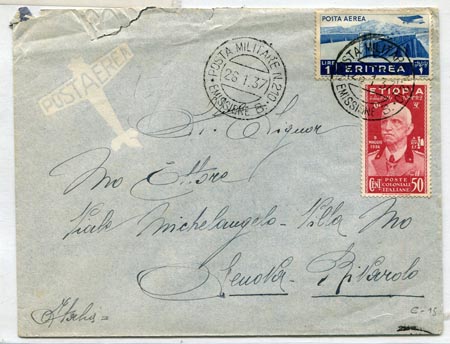 POSTA AEREA
POSTA MILITARE N. 210
26.1.37
EMISSIONE B.
POSTA AEREA
LIRE 1
ERITREA
POSTA MILITARE
ETIOPIA
9 MAGGIO 1936
POSTE
COLONIALI
ITALIANE
CENT 50
Signor
Ettore
Viale Michelangelo - Villa
Genova - Rivarolo
Italia
C-15